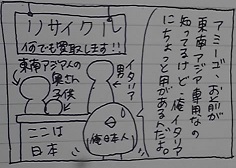 リサイクル
何でも買取します!!
アミーゴ、お前が
東南アジア専用なの
知ってるけど、俺イタリア
にちょっと用があるんだよ。
東南アジア人の
奥さん
子供
イタリア
男
ここは
日本
俺日本人